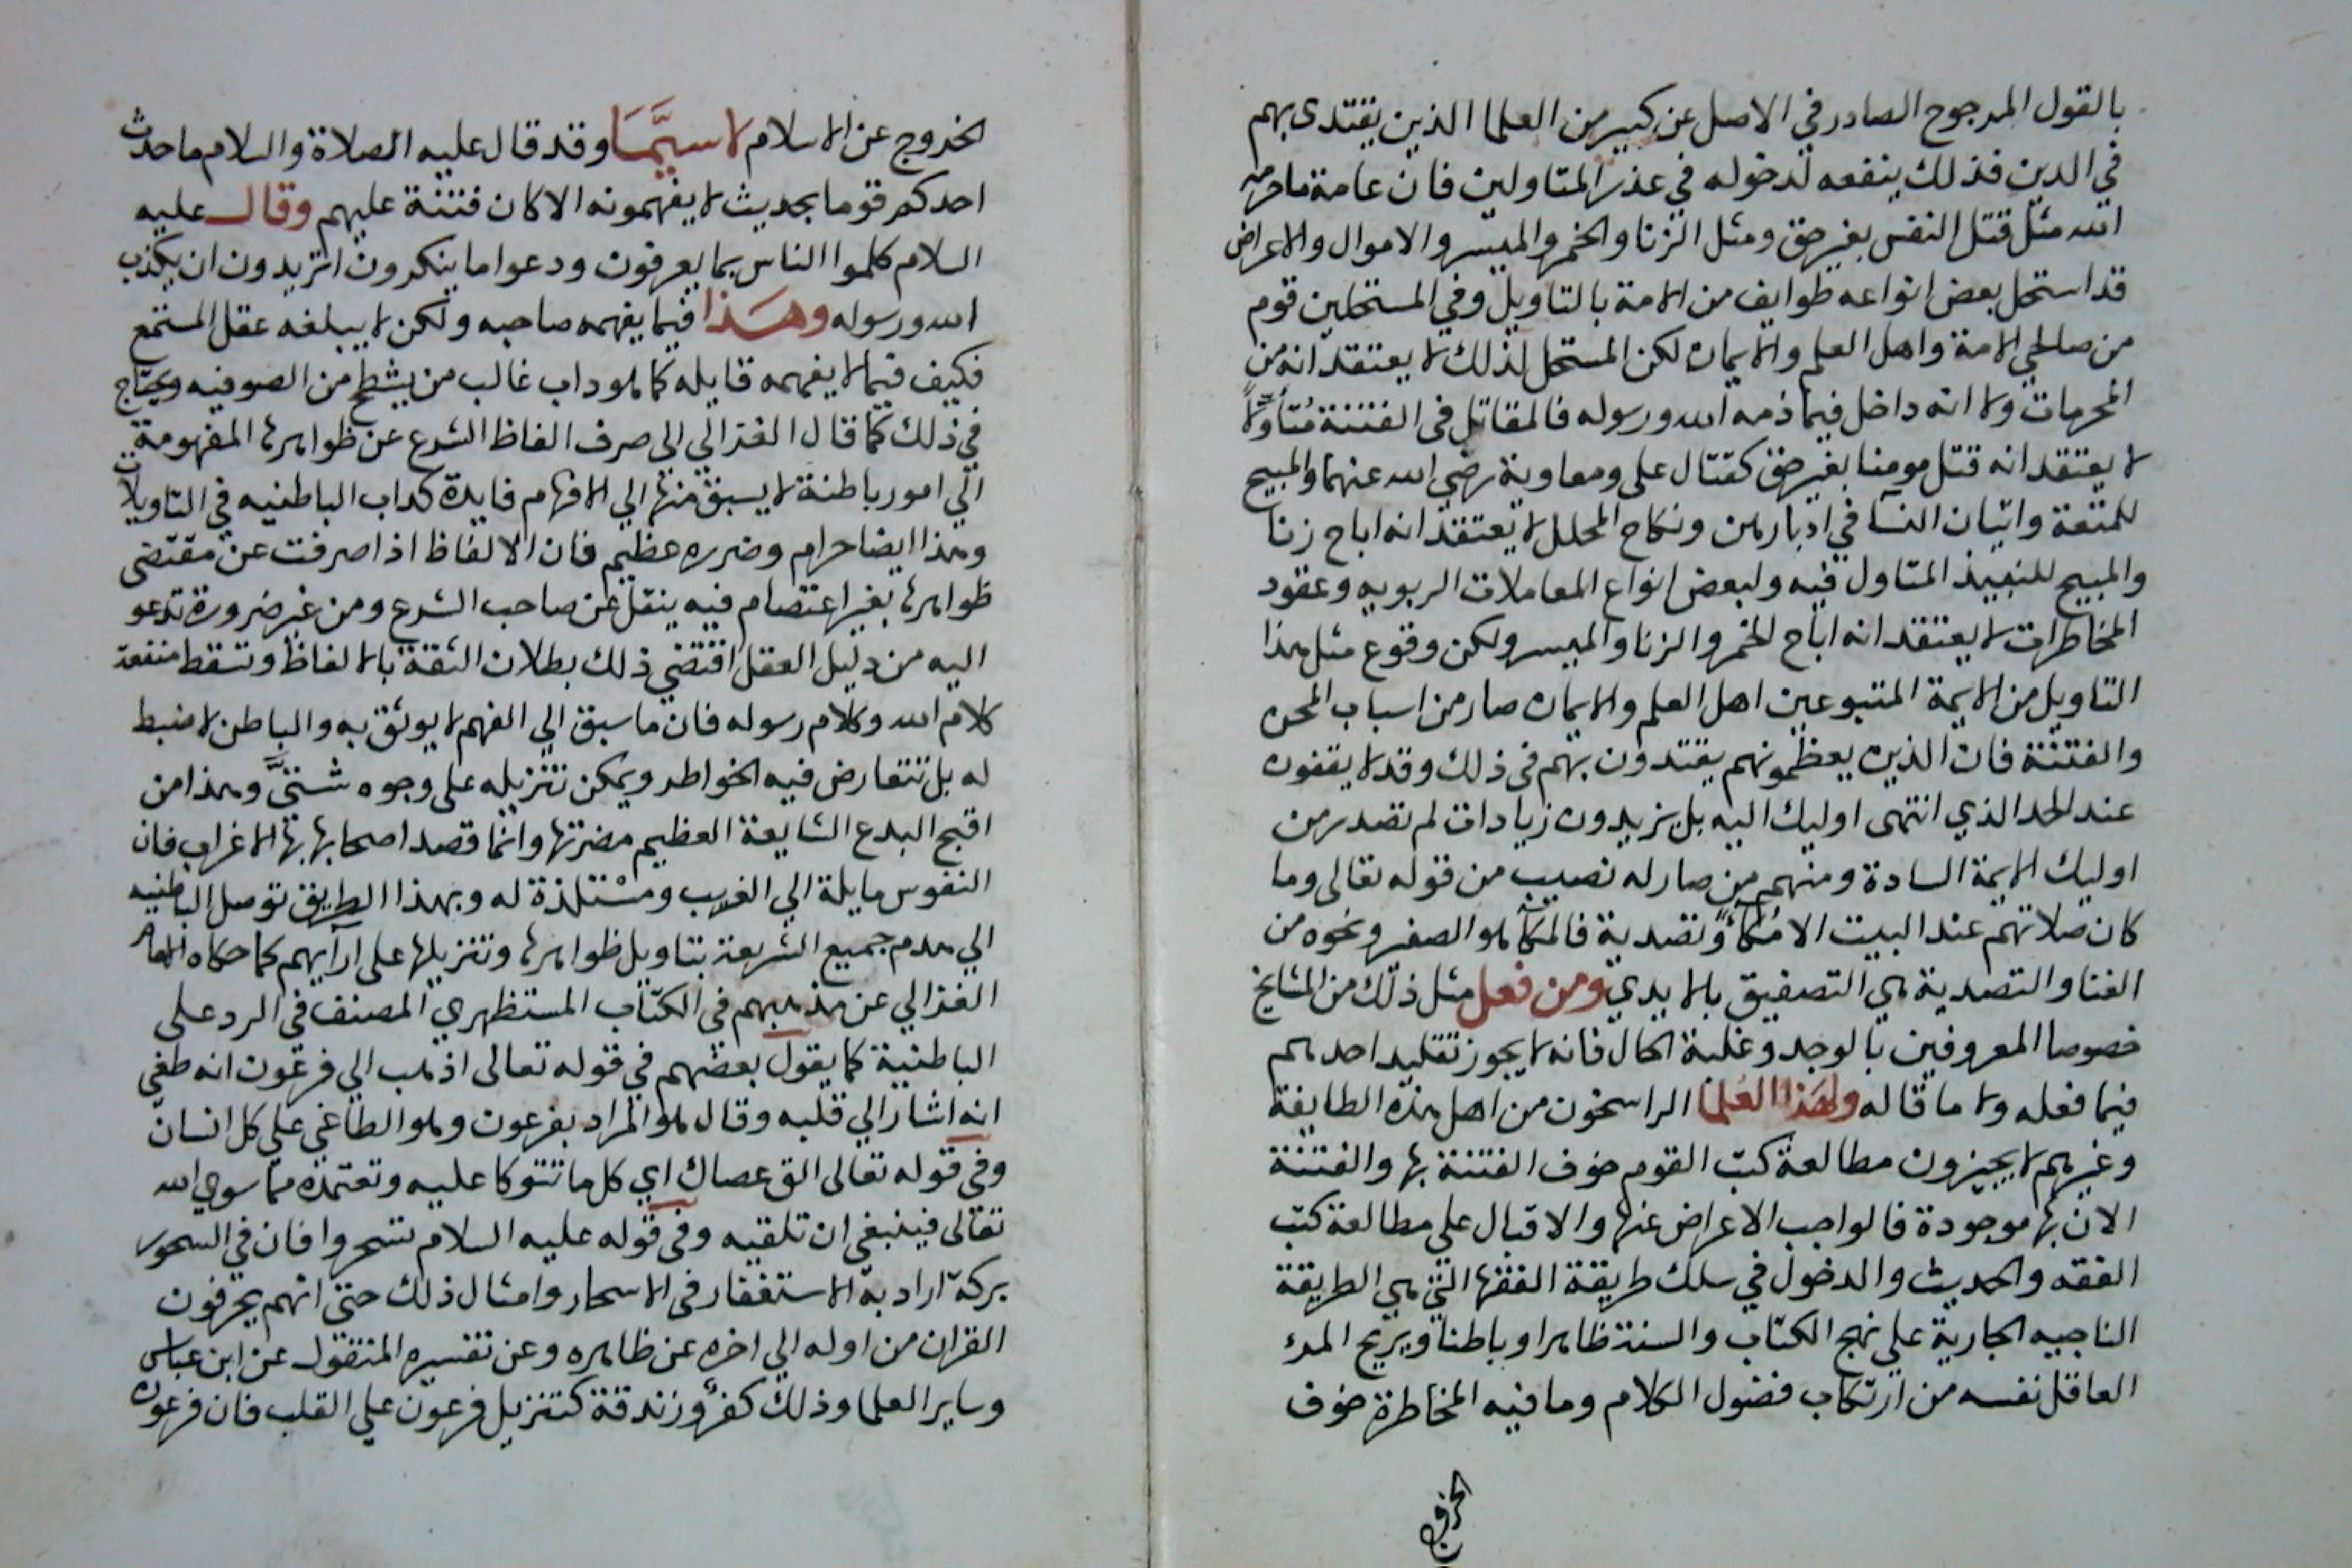 بالقول المرجوح الصادر في الاصل عن كبير من العلما الذين يقتدى بهم
في الدين فذلك ينفعه لدخوله في عذر المتاولين فان عامة ما حرمه
الله مثل قتل النفس بغير حق ومثل الزنا والخمر والميسر والاموال والاعراض
قد استحل بعض انواعه طوايف من الامة بالتاويل وفي المستحلين قوم
من صالحي الامة واهل العلم والايمان لكن المستحل لذلك لا يعتقد انه من
المحرمات ولا انه داخل فيما ذمه الله ورسوله فالمقاتل في الفتنة مُتأوّلاً
لا يعتقد انه قتل مومنا بغير حق كقتال على ومعاوية رضي الله عنهما والمبيح
للمتعة واتيان النسآ في ادبارهن ونكاح المحلل لا يعتقد انه اباح زنا
والمبيح للنبيذ المتاول فيه ولبعض انواع المعاملات الربويه وعقود
المخاطرات لا يعتقد انه اباح الخمر والزنا والميسر ولكن وقوع مثل هذا
التاويل من الايمة المتبوعين اهل العلم والايمان صار من اسباب المحن
والفتنة فان الذين يعظمونهم يقتدون بهم في ذلك وقد لا يقفون
عند الحد الذي انتهى اوليك اليه بل يزيدون زيادات لم تصدر من
اوليك الايمة السادة ومنهم من صار له نصيب من قوله تعالى وما
كان صلاتهم عند البيت الا مُكآءً وتصدية فالمكآ هو الصفر ونحوه من
الغنا والتصدية هي التصفيق بالايدي ومن فعل مثل ذلك من المشايخ
خصوصا المعروفين بالوجد وغلبة الحال فانه لا يجوز تقليد احد هم
فيما فعله ولا ما قاله ولهذا العُلما الراسخون من اهل هذه الطايفة
وغيرهم لا يجيزون مطالعة كتب القوم خوف الفتنة بها والفتنة
الان بها موجودة فالواجب الاعراض عنها والاقبال علي مطالعة كتب
الفقه والحديث والدخول في سلك طريقة الفقها التي هي الطريقة
الناجيه الجارية علي نهج الكتاب والسنة ظاهرا وباطنا ويريح المرء
العاقل نفسه من ارتكاب فضول الكلام وما فيه المخاطرة خوف
الخروج
الخروج عن الاسلام لا سيَّمَا وقد قال عليه الصلاة والسلام ما حدث
احدكم قوما بحديث لا يفهمونه الا كان فتنة عليهم وقال عليه
السلام كلموا الناس بما يعرفون ودعوا ما ينكرون اتريدون ان يكذب
الله ورسوله وهَذا فيما يفهمه صاحبه ولكن لا يبلغه عقل المستمع
فكيف فيما لا يفهمه قايله كما هو داب غالب من يشطح من الصوفيه ويحتاج
في ذلك كما قال الغزالي الى صرف الفاظ الشرع عن ظواهرها المفهومة
الي امور باطنة لا يسبق منها الي الافهام فايدة كداب الباطنيه في التاويلات
وهذا ايضا حرام وضرره عظيم فان الالفاظ اذا صرفت عن مقتضى
ظواهرها بغير اعتصام فيه ينقل عن صاحب الشرع ومن غير ضرورة تدعو
اليه من دليل العقل اقتضي ذلك بطلان الثقة بالالفاظ وتسقط منفعة
كلام الله وكلام رسوله فان ما سبق الي الفهم لا يوثق به والباطن لا ضبط
له بل تتعارض فيه الخواطر ويمكن تنزيله على وجوه شتيَّ وهذا من
اقبح البدع الشايعة العظيم مضرتها وانما قصد اصحابها بها الاغراب فان
النفوس مايلة الي الغريب ومسْتلذة له وبهذا الطريق توصل الباطنيه
الي هدم جميع الشريعة بتاويل ظواهرها وتنزيلها على ارآيهم كما حكاه الامام
الغزالي عن مذهبهم في الكتاب المستظهري المصنف في الرد على
الباطنية كما يقول بعضهم في قوله تعالى اذهب الي فرعون انه طغي
انه اشار الي قلبه وقال هو المراد بفرعون وهو الطاغي علي كل انسان
وفي قوله تعالى الق عصاك اي كل ما تتوكا عليه وتعتمده مما سوي الله
تعالى فينبغي ان تلقيه وفي قوله عليه السلام تسحروا فان في السحور
بركة اراد به الاستغفار في الاسحار وامثال ذلك حتى انهم يحرفون
القران من اوله الي اخره عن ظاهره وعن تفسيره المنقول عن ابن عباس
وساير العلما وذلك كفرٌ وزندقة كتنزيل فرعون علي القلب فان فرعون